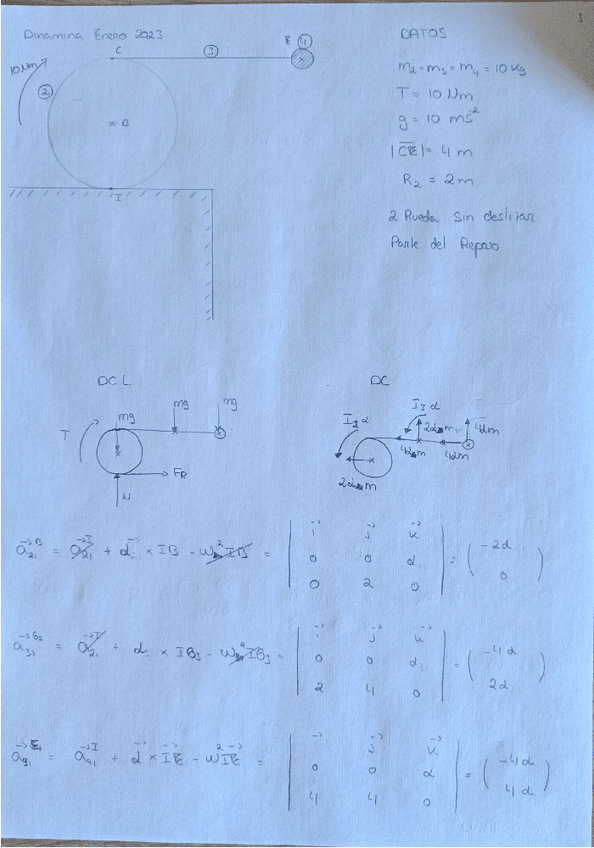 1
Dinamina Enero 2023
C
3
E 4
10 Nm
2
B
I
DATOS
m₂ = m₃ = m₄ = 10 Kg
T = 10 Nm
g = 10 ms⁻²
|CE| = 4 m
R₂ = 2 m
2 Rueda sin deslizar
Parte del Reposo
DCL
mg
mg
mg
T
FR
N
DC
I₂ α
I₃ α
2αm
4αm
4αm
4αm
2αm
a₂₁ᴮ = a₂₁ᴵ + α × IB - ω² IB = | i j k | 0 0 α | 0 2 0 | = ( -2α 0 )
a₃₁ᴳ³ = a₂₁ᴵ + α × IG₃ - ω² IG₃ = | i j k | 0 0 α | 2 4 0 | = ( -4α 2α )
= a₄₁ᴵ + α × IE - ω² IE = | j k | 0 0 α | 4 4 0 | = ( -4α 4α )